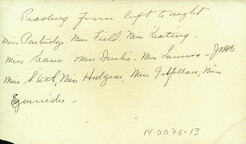 Reading from left to right
Miss Partridge Miss Field. Miss Keating.
Miss Keane Miss Durlin. Mrs
Miss Stott, Miss Hodgson, Miss Gigfillan, Miss
Egmindes.
14.0076-13